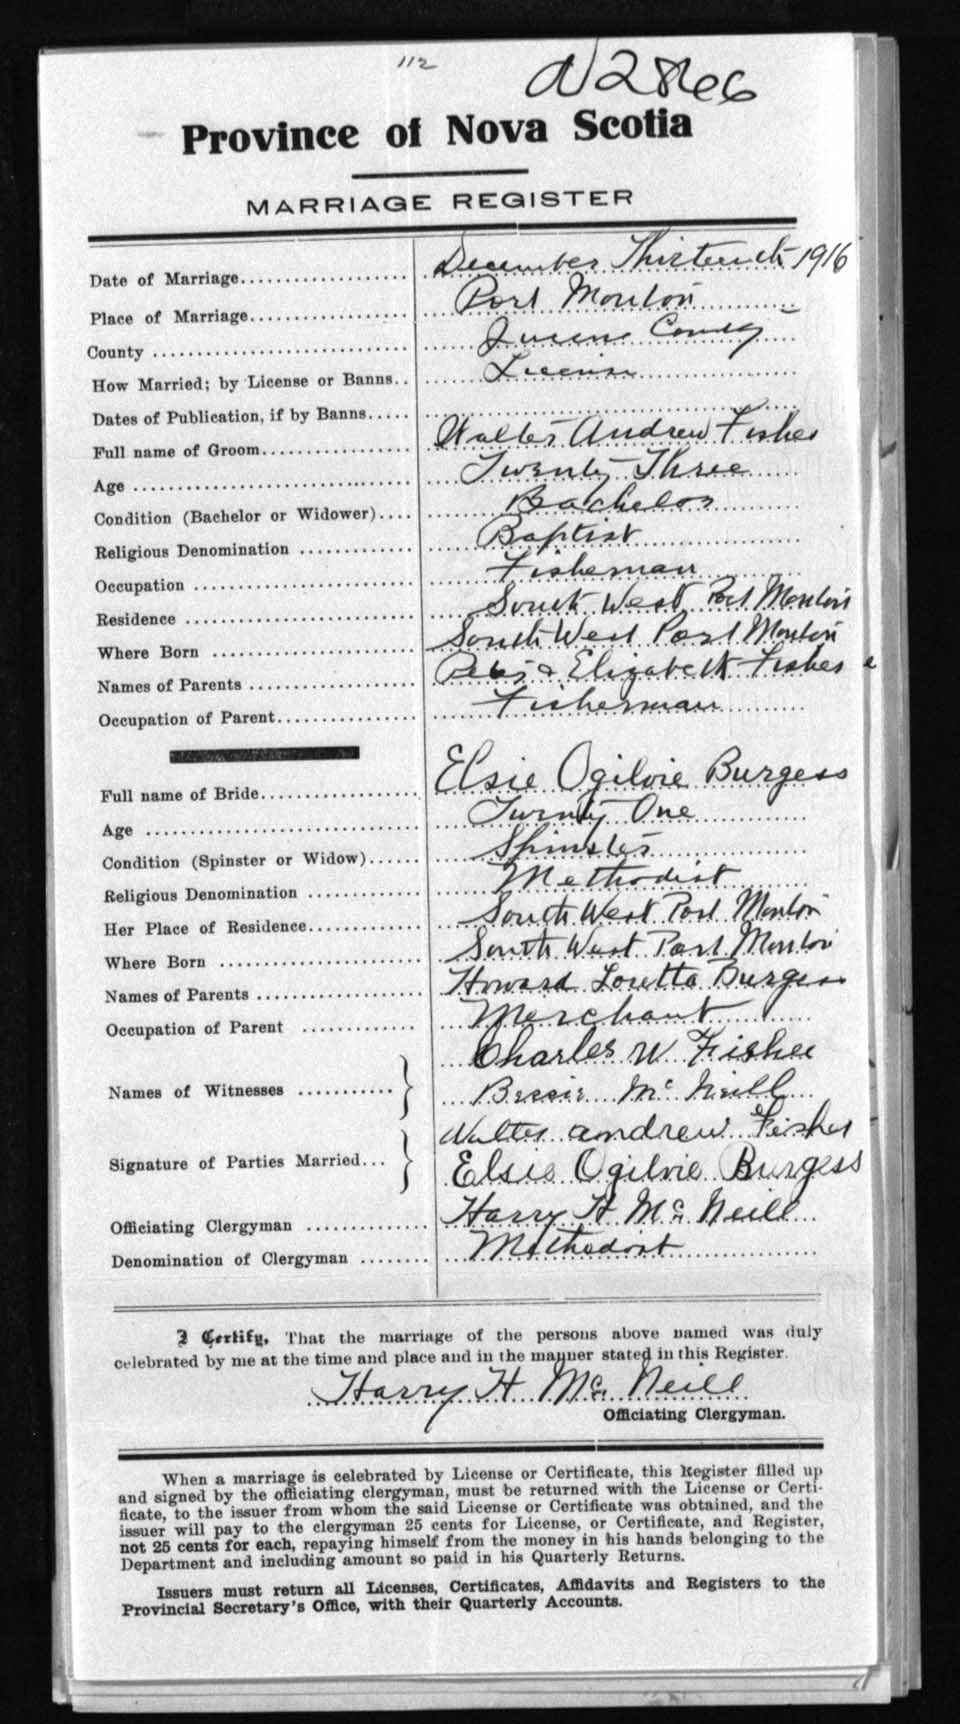 112
N2866
Province of Nova Scotia
MARRIAGE REGISTER
Date of Marriage.................... December Thirteenth 1916
Place of Marriage................... Port Mouton
County ............................ Queens County
How Married; by License or Banns.. License
Dates of Publication, if by Banns.....
Full name of Groom.................. Walter Andrew Fisher
Age ............................... Twenty Three
Condition (Bachelor or Widower).... Bachelor
Religious Denomination ............. Baptist
Occupation ........................ Fisherman
Residence ......................... South West Port Mouton
Where Born ....................... South West Port Mouton
Names of Parents .................. & Elizabeth Fisher
Occupation of Parent............... Fisherman
Full name of Bride.................. Elsie Ogilvie Burgess
Age ............................... Twenty One
Condition (Spinster or Widow)...... Spinster
Religious Denomination ............ Methodist
Her Place of Residence............. South West Port Mouton
Where Born ....................... South West Port Mouton
Names of Parents .................. Howard Loretta Burgess
Occupation of Parent .............. Merchant
Names of Witnesses ........... } Charles W Fisher
Bessie McNeill
Signature of Parties Married... } Walter Andrew Fisher
Elsie Ogilvie Burgess
Officiating Clergyman ............. Harry H McNeill
Denomination of Clergyman ........ Methodist
I Certify, That the marriage of the persons above named was duly
celebrated by me at the time and place and in the manner stated in this Register.
Harry H McNeill
Officiating Clergyman.
When a marriage is celebrated by License or Certificate, this Register filled up
and signed by the officiating clergyman, must be returned with the License or Certi-
ficate, to the issuer from whom the said License or Certificate was obtained, and the
issuer will pay to the clergyman 25 cents for License, or Certificate, and Register,
not 25 cents for each, repaying himself from the money in his hands belonging to the
Department and including amount so paid in his Quarterly Returns.
Issuers must return all Licenses, Certificates, Affidavits and Registers to the
Provincial Secretary's Office, with their Quarterly Accounts.